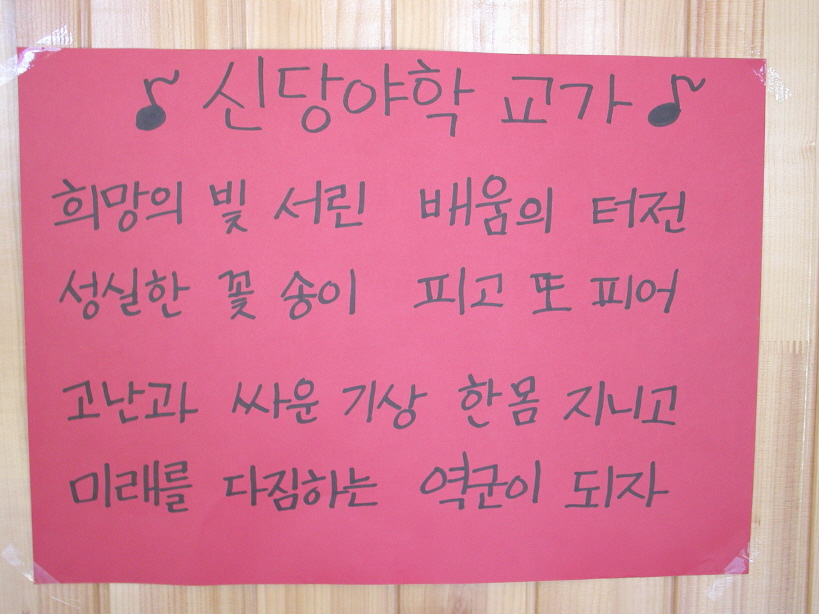 ♪ 신당야학 교가 ♪
희망의 빛 서린 배움의 터전
성실한 꽃 송이 피고 또 피어
고난과 싸운 기상 한몸 지니고
미래를 다짐하는 역군이 되자